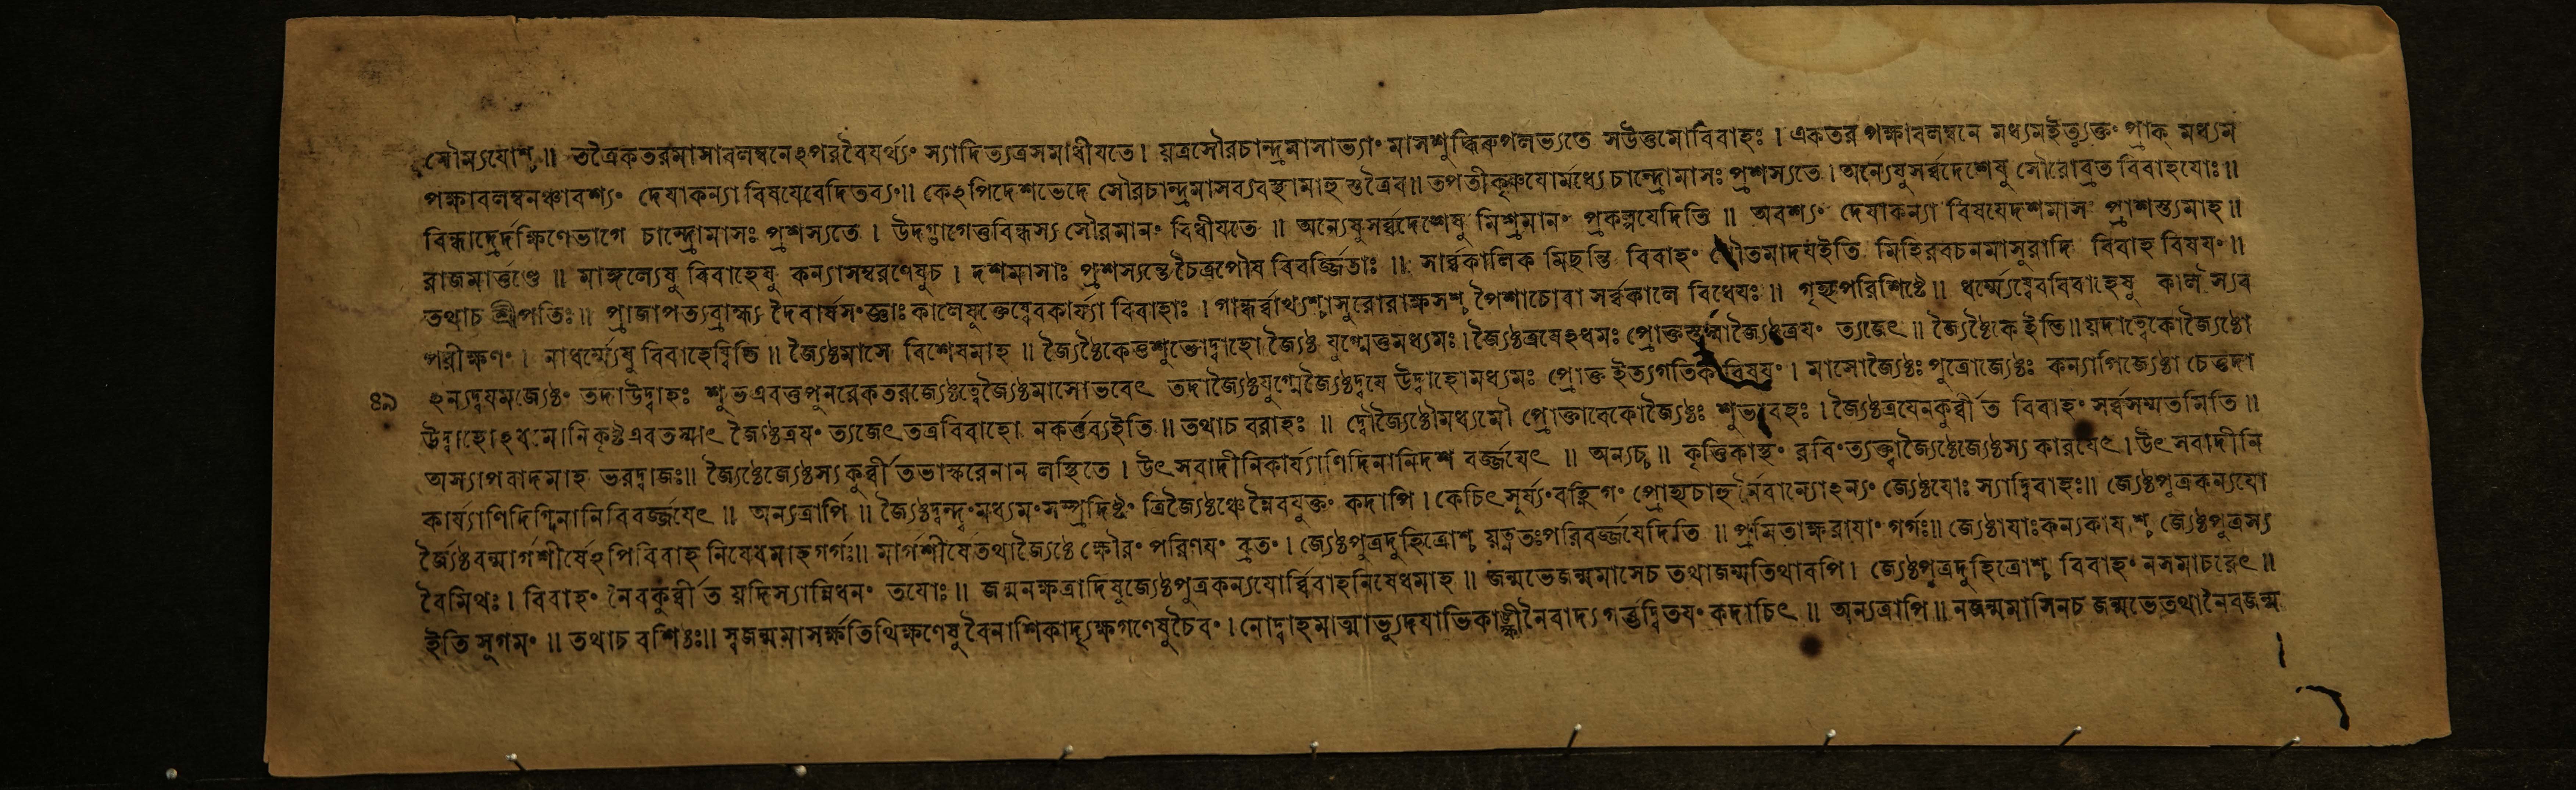 সৌম্যযোশ্চ ॥ তত্রৈকতরমাসাবলম্বনেঽপরবৈযর্থ্যং স্যাদিত্যত্রসমাধীযতে । যত্রসৌরচান্দ্রমাসাভ্যাং মাসশুদ্ধিরুপলভ্যতে সউত্তমোবিবাহঃ । একতর পক্ষাবলম্বনে মধ্যমইত্যুক্তং প্রাক্ মধ্যম
পক্ষাবলম্বনঞ্চাবশ্যং দেযাকন্যা বিষযেবেদিতব্যং ॥ কেঽপিদেশভেদে সৌরচান্দ্রমাসব্যবস্থামাহু স্তত্রৈব ॥ তপতীকৃষ্ণযোর্মধ্যে চান্দ্রোমাসঃ প্রশস্যতে । অন্যেষুসর্ব্বদেশেষু সৌরোব্রত বিবাহযোঃ ॥
বিন্ধ্যাদ্রের্দক্ষিণেভাগে চান্দ্রোমাসঃ প্রশস্যতে । উদগ্ভাগেত্তুবিন্ধস্য সৌরমানং বিধীযতে ॥ অন্যেষুসর্ব্বদেশেষু মিশ্রমানং প্রকল্পযেদিতি ॥ অবশ্যং দেযাকন্যা বিষযেদশমাস প্রাশস্ত্যমাহ ॥
রাজমার্ত্তণ্ডে ॥ মাঙ্গল্যেষু বিবাহেষু কন্যাসম্বরণেষুচ । দশমাসাঃ প্রশস্যন্তে চৈত্রপৌষ বিবর্জ্জিতাঃ ॥ সার্ব্বকালিক মিছন্তি বিবাহং গৌতমাদযইতি মিহিরবচনমাসুরাদি বিবাহ বিষযং ॥
তথাচ শ্রীপতিঃ ॥ প্রাজাপত্যব্রাহ্ম্য দৈবার্ষসংজ্ঞাঃ কালেষুক্তেষ্বেবকার্য্যা বিবাহাঃ । গান্ধর্ব্বাখ্যশ্চাসুরোরাক্ষসশ্চ পৈশাচোবা সর্ব্বকালে বিধেযঃ ॥ গৃহ্যপরিশিষ্টে ॥ ধর্ম্ম্যেষ্বেববিবাহেষু কাল স্যব
পরীক্ষণং । নাধর্ম্ম্যেষু বিবাহেষ্বিতি ॥ জ্যৈষ্ঠমাসে বিশেষমাহ ॥ জ্যৈষ্ঠৈকেত্তুশুভোদ্বাহো জ্যৈষ্ঠ যুগ্মেত্তুমধ্যমঃ । জ্যৈষ্ঠত্রযেঽধমঃ প্রোক্তস্তস্মাজ্যৈষ্ঠত্রযং ত্যজেৎ ॥ জ্যৈষ্ঠৈকে ইতি ॥ যদাত্বেকোজ্যৈষ্ঠো
৪৯ ঽন্যদ্বযমজ্যেষ্ঠং তদাউদ্বাহঃ শুভএবত্তুপুনরেকতরজ্যেষ্ঠত্বেজ্যৈষ্ঠমাসোভবেৎ তদাজ্যৈষ্ঠযুগ্মেজ্যৈষ্ঠদ্বযে উদ্বাহোমধ্যমঃ প্রোক্ত ইত্যগতিক বিষযং । মাসোজ্যৈষ্ঠঃ পুত্রোজ্যেষ্ঠঃ কন্যাপিজ্যেষ্ঠা চেত্তদা
উদ্বাহোঽধমোনিকৃষ্ট এবতস্মাৎ জ্যৈষ্ঠত্রযং ত্যজেৎ তত্রবিবাহো নকর্ত্তব্যইতি ॥ তথাচ বরাহঃ ॥ দ্বৌজ্যৈষ্ঠৌমধ্যমৌ প্রোক্তাবেকোজ্যৈষ্ঠঃ শুভাবহঃ । জ্যৈষ্ঠত্রযেনকুর্ব্বীত বিবাহং সর্ব্বসম্মতমিতি ॥
অস্যাপবাদমাহ ভরদ্বাজঃ ॥ জ্যৈষ্ঠেজ্যেষ্ঠস্য কুর্ব্বীতভাস্করেনান লস্থিতে । উৎসবাদীনিকার্য্যাণিদিনানিদশ বর্জ্জযেৎ ॥ অন্যচ্চ ॥ কৃত্তিকাস্থং রবিংত্যক্ত্বাজ্যৈষ্ঠেজ্যেষ্ঠস্য কারযেৎ । উৎসবাদীনি
কার্য্যাণিদিগ্দিনানিবিবর্জ্জযেৎ ॥ অন্যত্রাপি ॥ জ্যৈষ্ঠদ্বন্দ্বংমধ্যমংসম্প্রদিষ্টং ত্রিজ্যৈষ্ঠঞ্চেন্নৈবযুক্তং কদাপি । কেচিৎসূর্য্যংবহ্নিগং প্রোহ্যচাহুর্নৈবান্যোঽন্যং জ্যেষ্ঠযোঃ স্যাদ্বিবাহঃ ॥ জ্যেষ্ঠপুত্রকন্যযো
র্জ্যৈষ্ঠবন্মার্গশীর্ষেঽপিবিবাহ নিষেধমাহ গর্গঃ ॥ মার্গশীর্ষেতথাজ্যৈষ্ঠে ক্ষৌরং পরিণযং ব্রতং । জ্যেষ্ঠপুত্রদুহিত্রোশ্চ যত্নতঃপরিবর্জ্জযেদিতি ॥ প্রমিতাক্ষরাযাং গর্গঃ ॥ জ্যেষ্ঠাযাঃকন্যকাযাশ্চ জ্যেষ্ঠপুত্রস্য
বৈমিথঃ । বিবাহং নৈবকুর্ব্বীত যদিস্যান্নিধনং তযোঃ ॥ জন্মনক্ষত্রাদিষুজ্যেষ্ঠপুত্রকন্যযোর্ব্বিবাহনিষেধমাহ ॥ জন্মভেজন্মমাসেচ তথাজন্মতিথাবপি । জ্যেষ্ঠপুত্রদুহিত্রোশ্চ বিবাহং নসমাচরেৎ ॥
ইতি সুগমং ॥ তথাচ বশিষ্ঠঃ ॥ স্বজন্মমাসর্ক্ষতিথিক্ষণেষু বৈনাশিকাদ্যৃক্ষগণেষুচৈবং । নোদ্বাহমাত্মাভ্যুদযাভিকাঙ্ক্ষীনৈবাদ্য গর্ভদ্বিতযং কদাচিৎ ॥ অন্যত্রাপি ॥ নজন্মমাসিনচ জন্মভেতথানৈবজন্ম